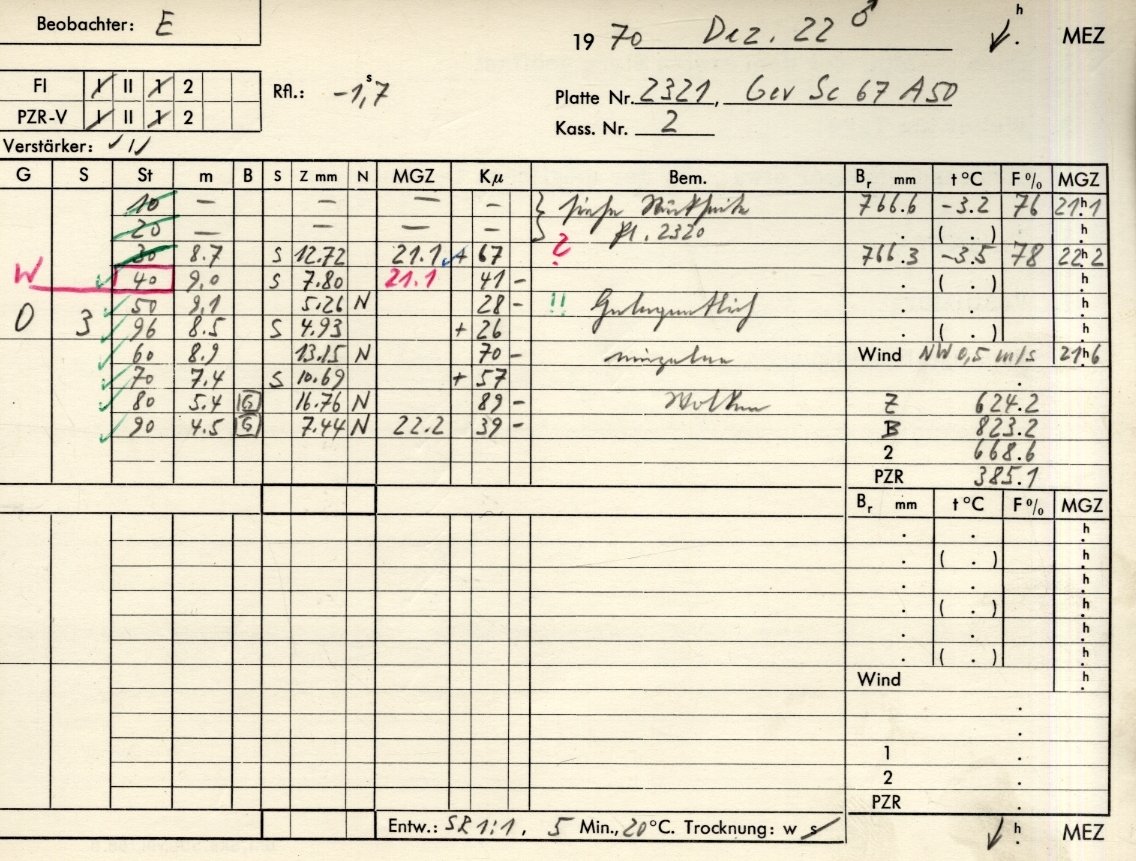 Beobachter: E
19 70 Dez. 22 ♂ h . MEZ
FI I II 1 2
Rfl.: -1,ˢ7
Platte Nr. 2321, Gev Sc 67 A50
PZR-V I II 1 2
Kass. Nr. 2
Verstärker:
G S St m B S Z mm N MGZ Kμ Bem. Br mm t °C F % MGZ
10 — — — — } siehe Rückseite 766.6 -3.2 76 21h1
20 — — — — Pl. 2320 . ( . ) h
30 8.7 S 12.72 21.1 + 67 ? 766.3 -3.5 78 22h2
W 40 9,0 S 7.80 21.1 41 - . ( . ) h
50 9,1 5.26 N 28 - !! Gelegentlich . . h
0 3 96 8.5 S 4.93 + 26 . ( . ) h
60 8.9 13.15 N 70 - einzelne Wind NW 0,5 m/s 21h6
70 7.4 S 10.69 + 57 .
80 5.4 G 16.76 N 89 - Wolken Z 624.2
90 4.5 G 7.44 N 22.2 39 - B 823.2
2 668.6
PZR 385.1
Br mm t °C F % MGZ
. . h
. ( . ) h
. . h
. ( . ) h
. . h
. ( . ) h
Wind h
.
.
1 .
2 .
PZR .
Entw.: SR 1:1, 5 Min., 20 °C. Trocknung: w s h . MEZ